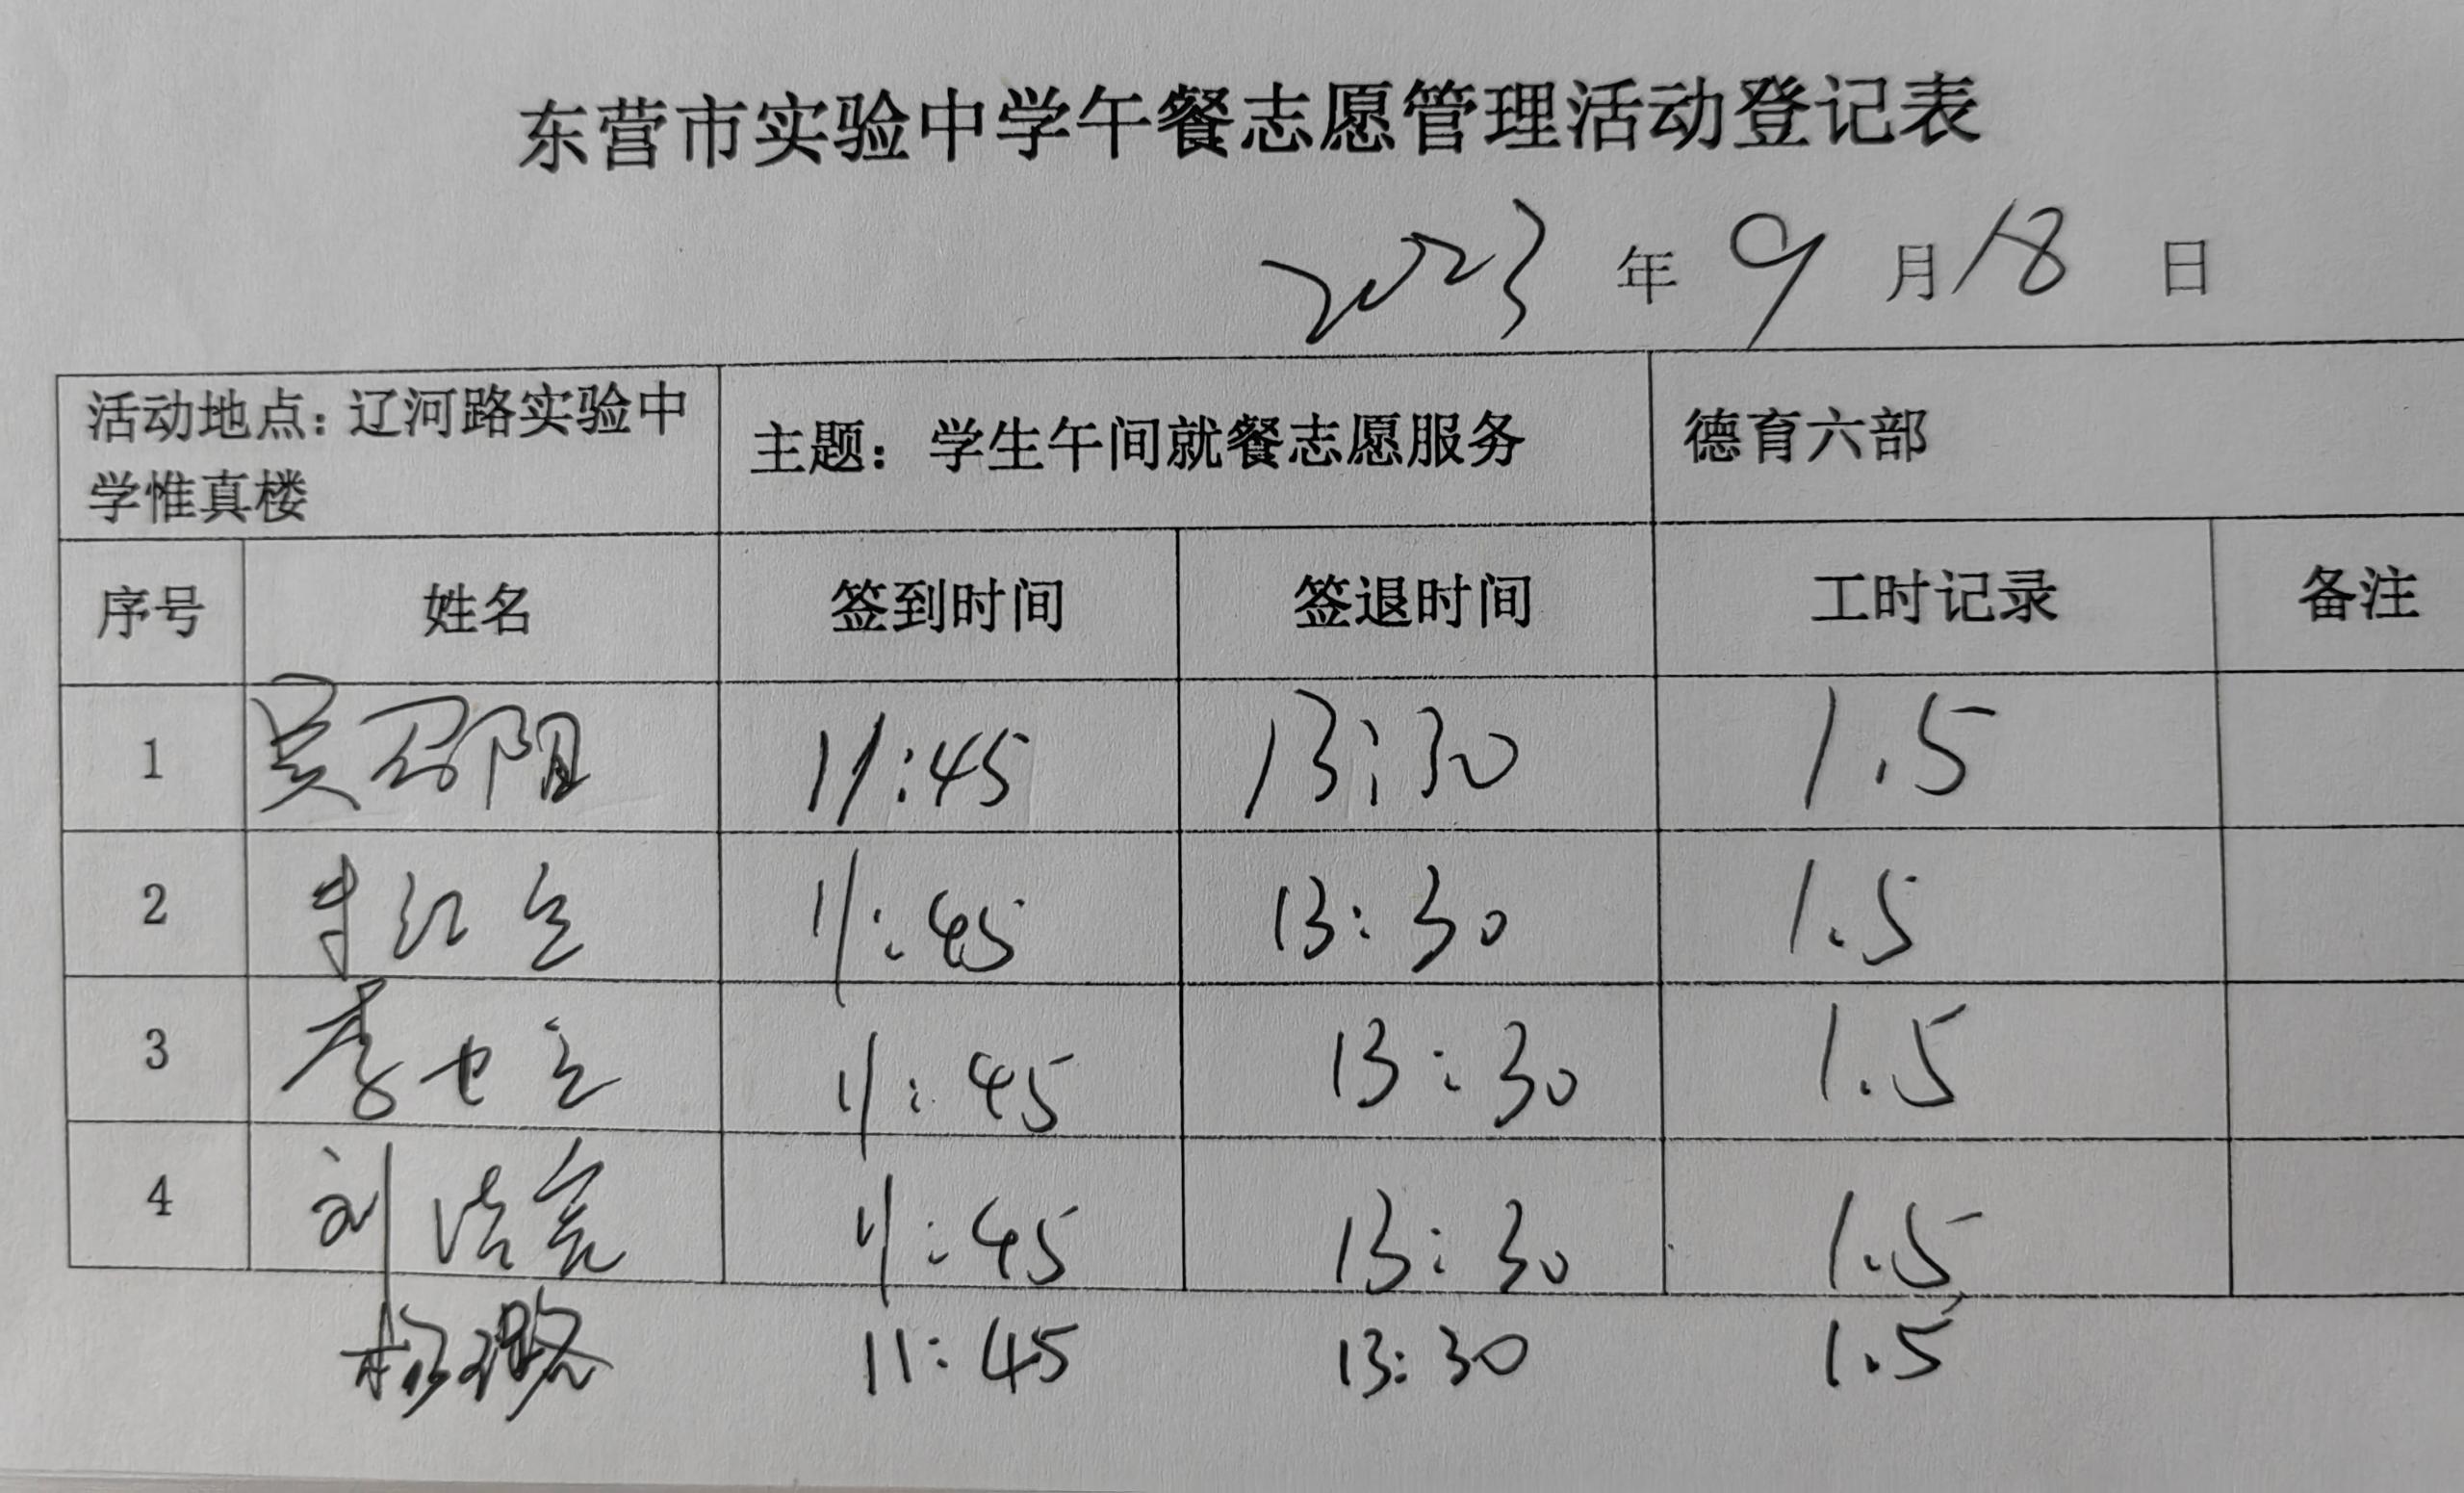 东营市实验中学午餐志愿管理活动登记表
2023 年 9 月 18 日
活动地点：辽河路实验中
学惟真楼
主题：学生午间就餐志愿服务
德育六部
序号 姓名 签到时间 签退时间 工时记录 备注
1 吴 11:45 13:30 1.5
2 11:45 13:30 1.5
3 李 11:45 13:30 1.5
4 刘 11:45 13:30 1.5
杨璐 11:45 13:30 1.5